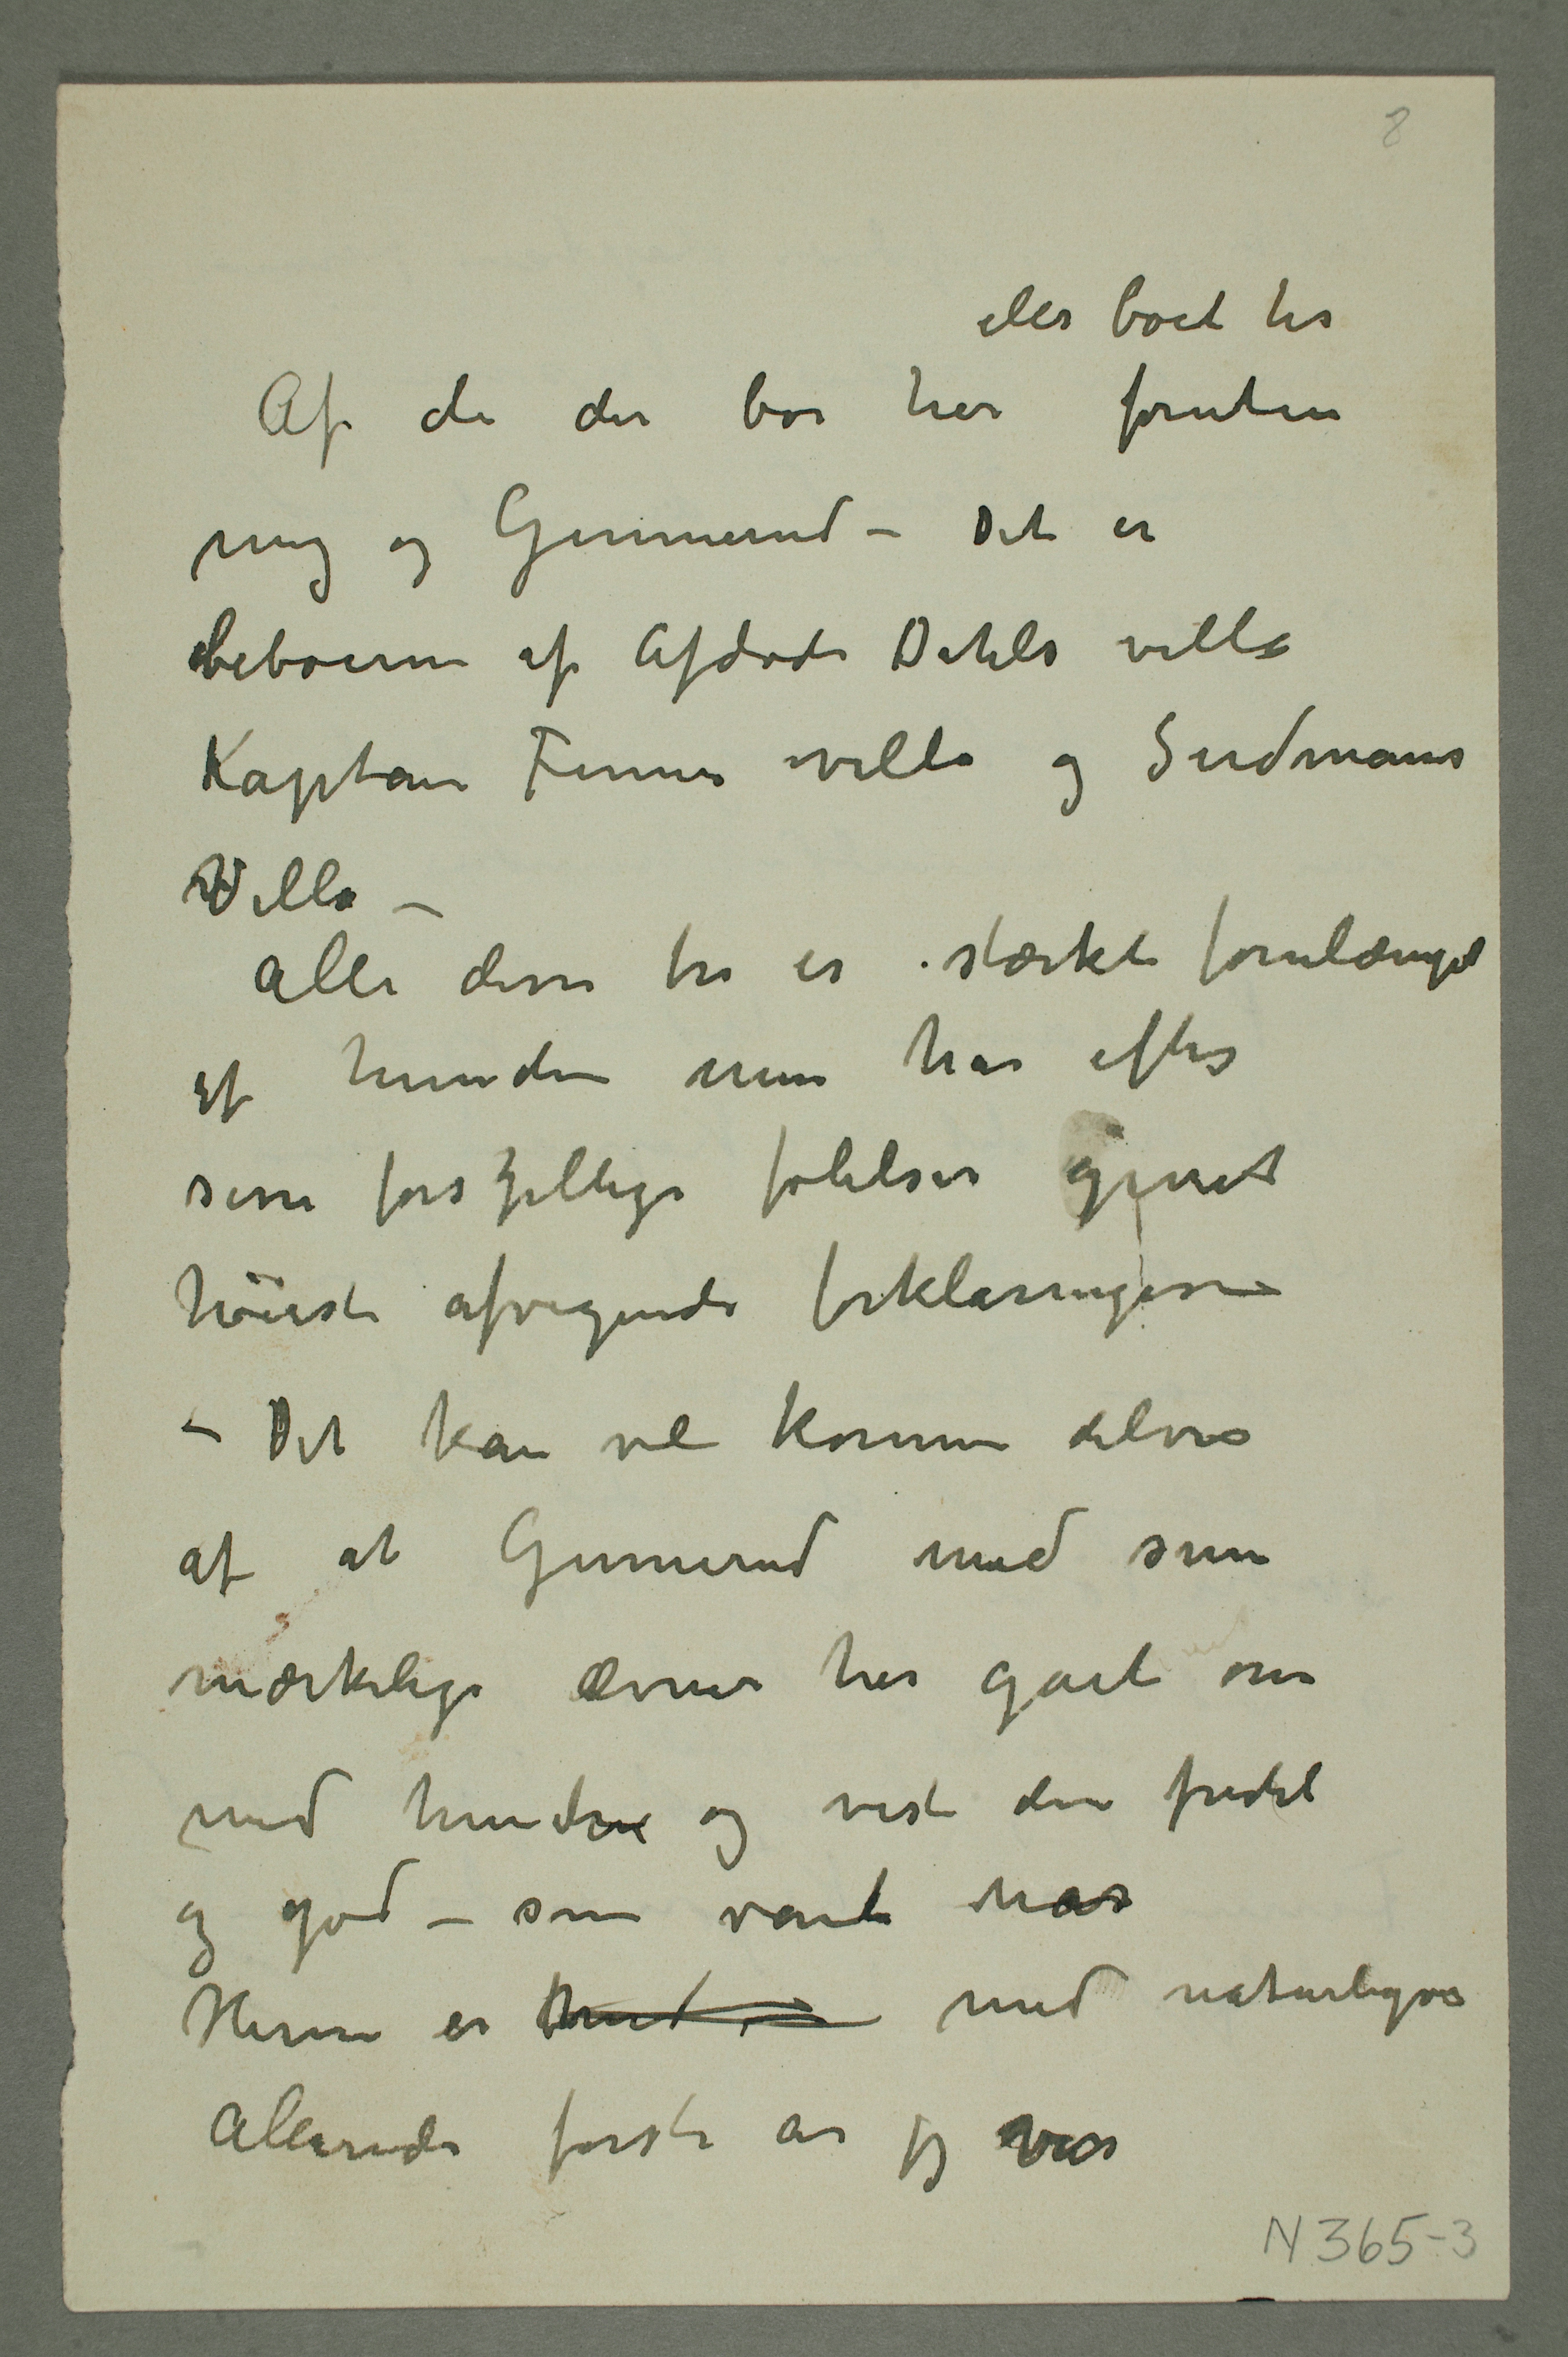 8
eller boet her
Af de der bor her foruten
mig og Gunnerud – Det er
beboerne af Afdøde Dahls villa
Kaptain Finnes villa og Surdmans
Villa –
alle disse tre er stærkt forulæmpet
af hunden men har efter
sine forskjellige følelser givet
høiest afvigende forklaringer
– Det kan vel komme delvis
af at Gunnerud med sine
mærkelige ævner har gaaet om
med hunden og vist den fredel
og god – som vante har
Herren er med naturligvis
Allerede første år jeg var
N 365-3